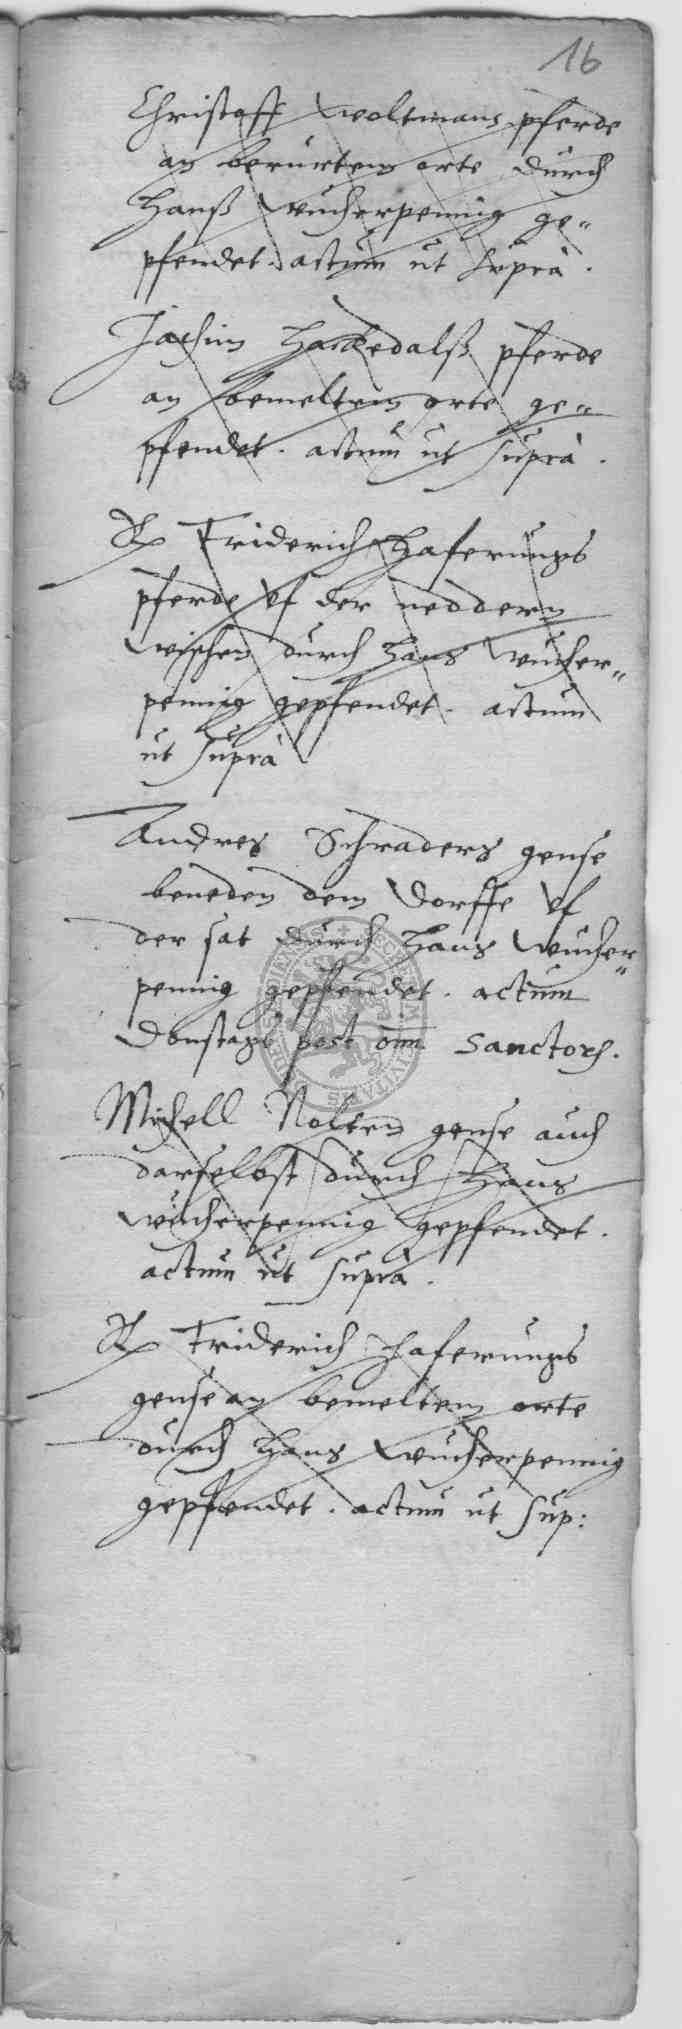 16
Christoff Woltmans pferde
an berurtem orte durch
Hanß Wucherpennig ge=
pfendet. actum ut suprà.
Jachim Hackedalß pferde
an bemeltem orte ge=
pfendet. actum ut suprà.
Friderich Haferungs
pferde uf der neddern
wischen durch Hans Wucher=
pennig gepfendet. actum
ut suprà
Andres Schraders gense
beneden dem Dorffe uf
der sat durch Hans Wucher=
pennig gepfendet. actum
Donstags post om. Sanctorum.
Michell Nolten gense auch
darselbst durch Hans
Wucherpennig gepfendet.
actum ut suprà.
Friderich Haferungs
gense an bemeltem orte
durch Hans Wucherpennig
gepfendet. actum ut sup: